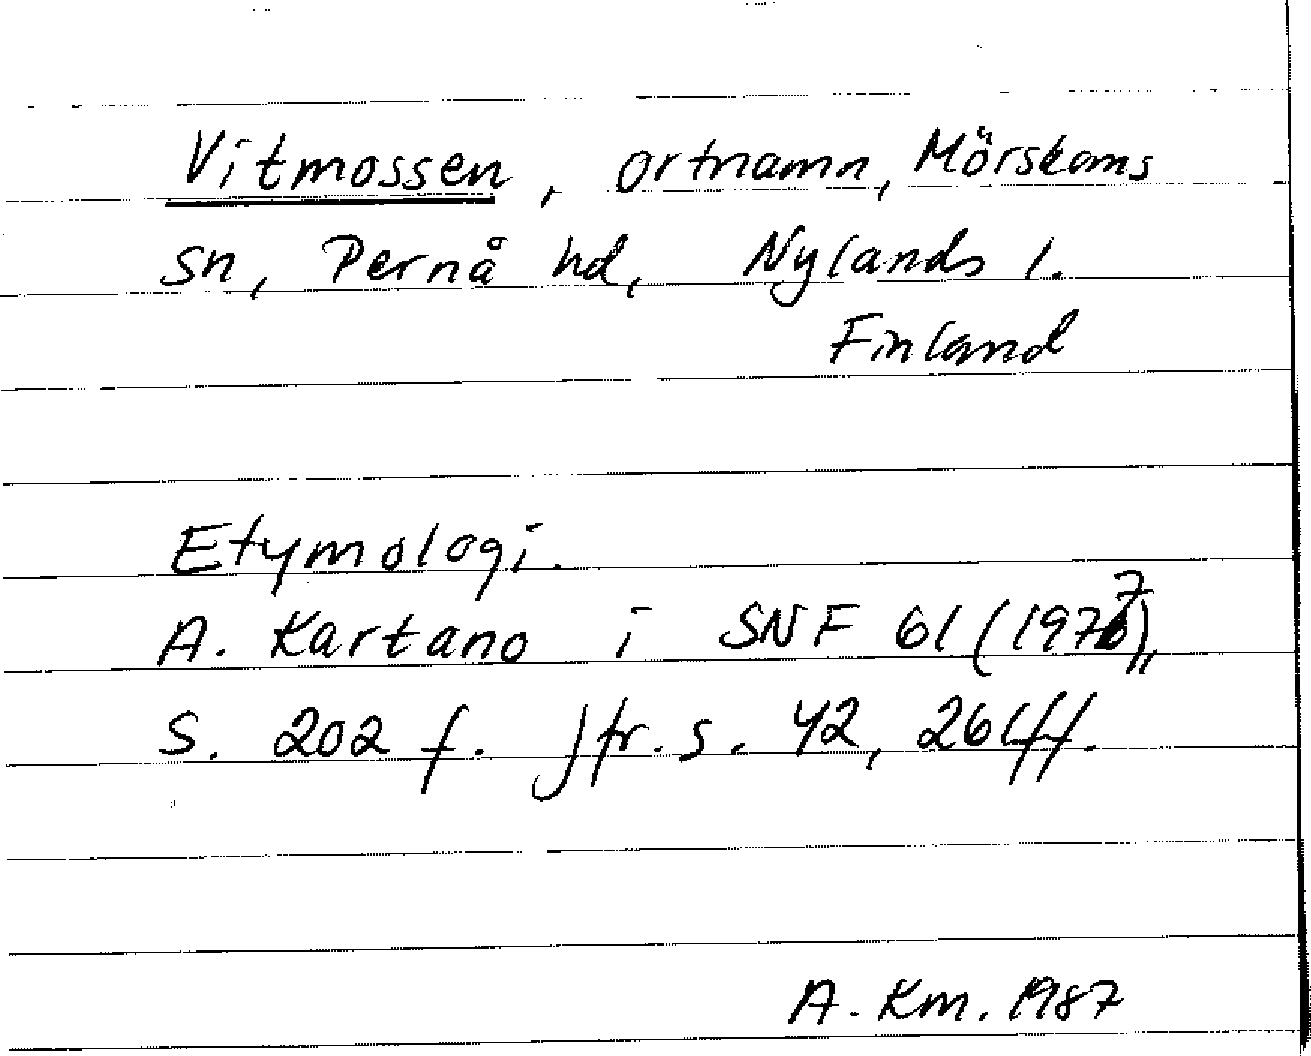 Vitmossen, ortnamn, Mörskoms
sn, Pernå hd, Nylands l.
Finland
Etymologi.
A. Kartano i SNF 61 (1977),
S. 202 f. Jfr. s. 42, 261ff.
A. Km. 1987